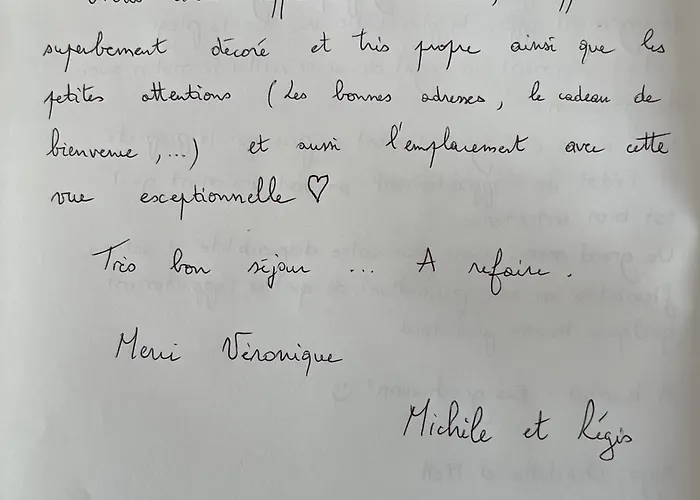 superbement décoré et très propre ainsi que les
petites attentions (Les bonnes adresses, le cadeau de
bienvenue, ...) et aussi l'emplacement avec cette
vue exceptionnelle ♡
Très bon séjour ... A refaire.
Merci Véronique
Michèle et Régis